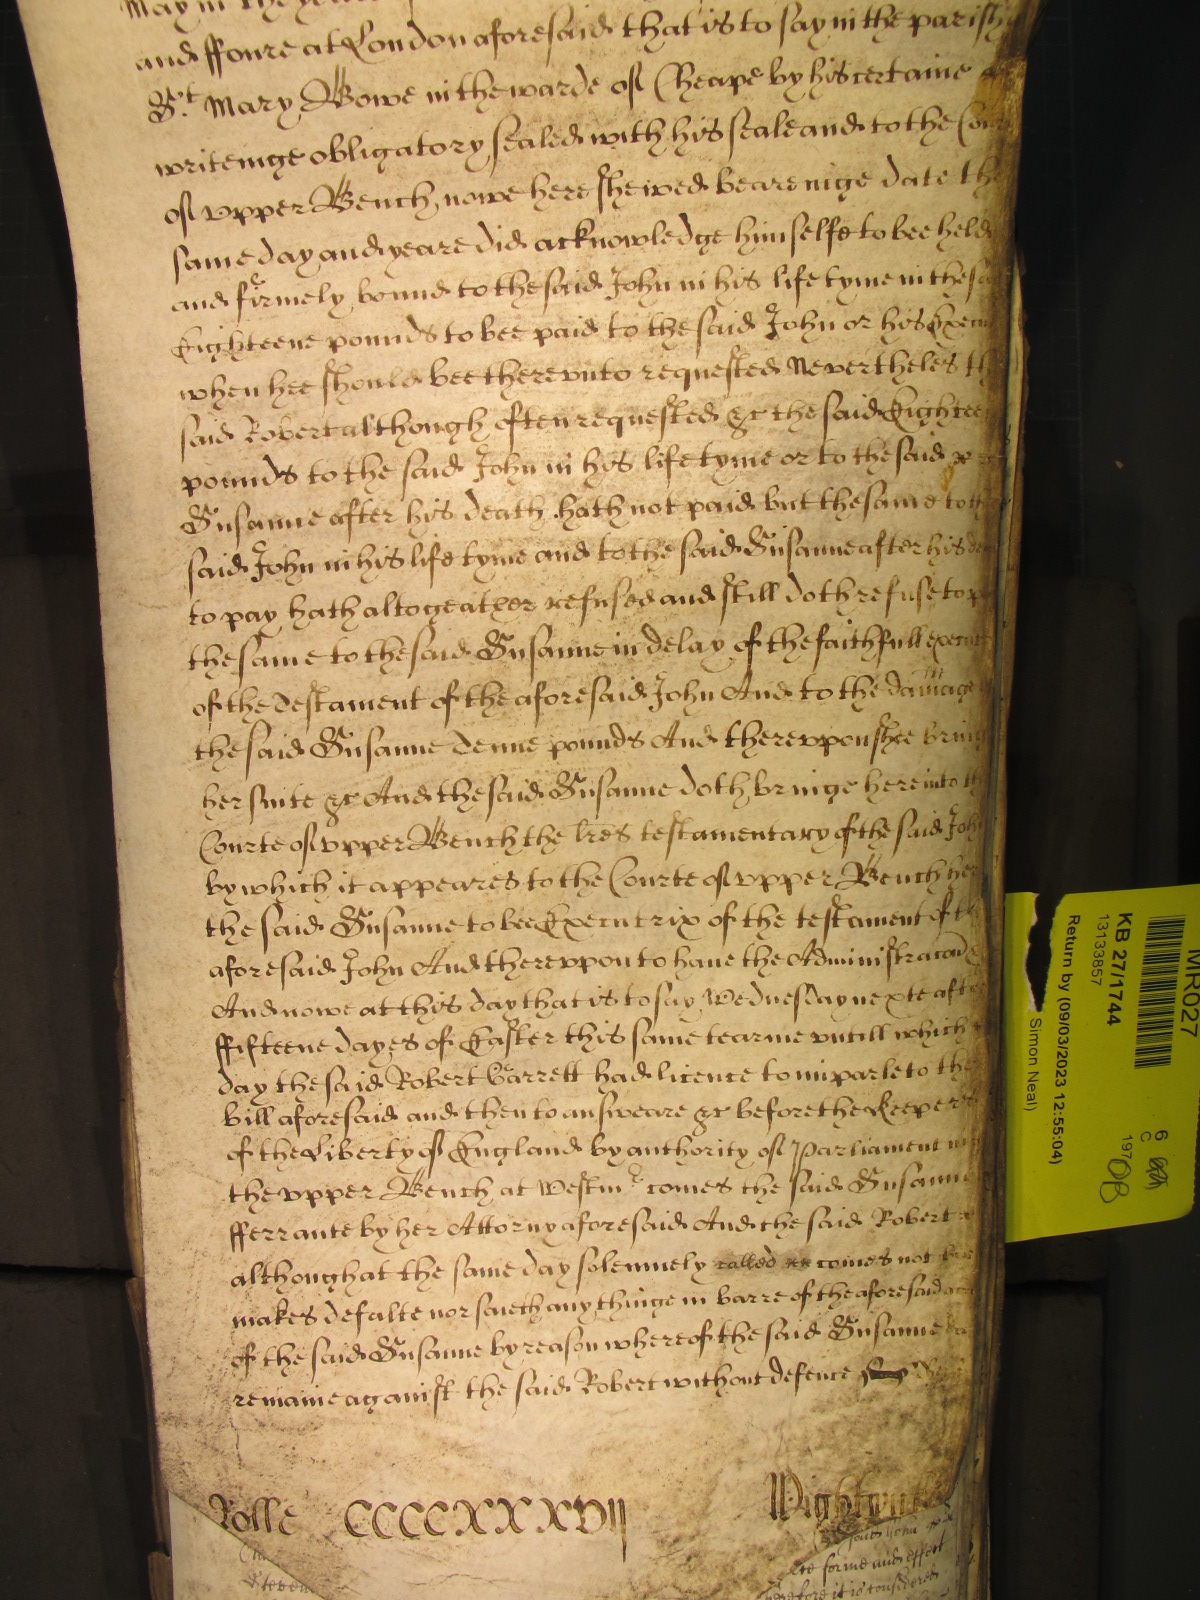 May in the yeare
and ffoure at London aforesaid that is to say in the parish
St. Mary Bowe in the warde of Cheape by his certaine
writeinge obligatory sealed with his seale and to the Cou
of vpper Bench nowe here shewed beareinge date the
same day and yeare did acknowledge himselfe to bee held
and firmely bound to the said John in his life tyme in the sa
Eighteene pounds to bee paid to the said John or his Execu
when hee should bee therevnto requested Nevertheles th
said Robert although often requested &c the said Eightee
pounds to the said John in his life tyme or to the said
Susanne after his death hath not paid but the same to the
said John in his life tyme and to the said Susanne after his de
to pay hath altogeather refused and still doth refuse to p
the same to the said Susanne in delay of the faithfull execut
of the testament of the aforesaid John And to the damage
the said Susanne Tenne pounds And therevpon shee bring
her suite &c And the said Susanne doth bringe here into th
Courte of vpper Bench the lres testamentary of the said Joh
by which it appeares to the Courte of vpper Bench her
the said Susanne to bee Executrix of the testament of th
aforesaid John And therevpon to haue the Administracon
And nowe at this day that is to say Wednesday nexte after
ffifteene dayes of Easter this same tearme vntill which
day the said Robert Garrett had licence to imparle to the
bill aforesaid and then to answeare &c before the Keepers
of the Liberty of England by authority of Parliament in
the vpper Bench at Westmr comes the said Susanne
fferrante by her Attorny aforesaid And the said Robert
although at the same day solemnely called comes not
makes defalte nor saieth any thinge in barre of the aforesaid
of the said Susanne by reason whereof the said Susanne
remaine against the said Robert without defence
Rolle CCCCXXXVII Wightwick
said John
the forme and effect
Therefore it is considered
MR027
KB 27/1744
13133857
Return by (09/03/2023 12:55:04)
Simon Neal)
6
C
197